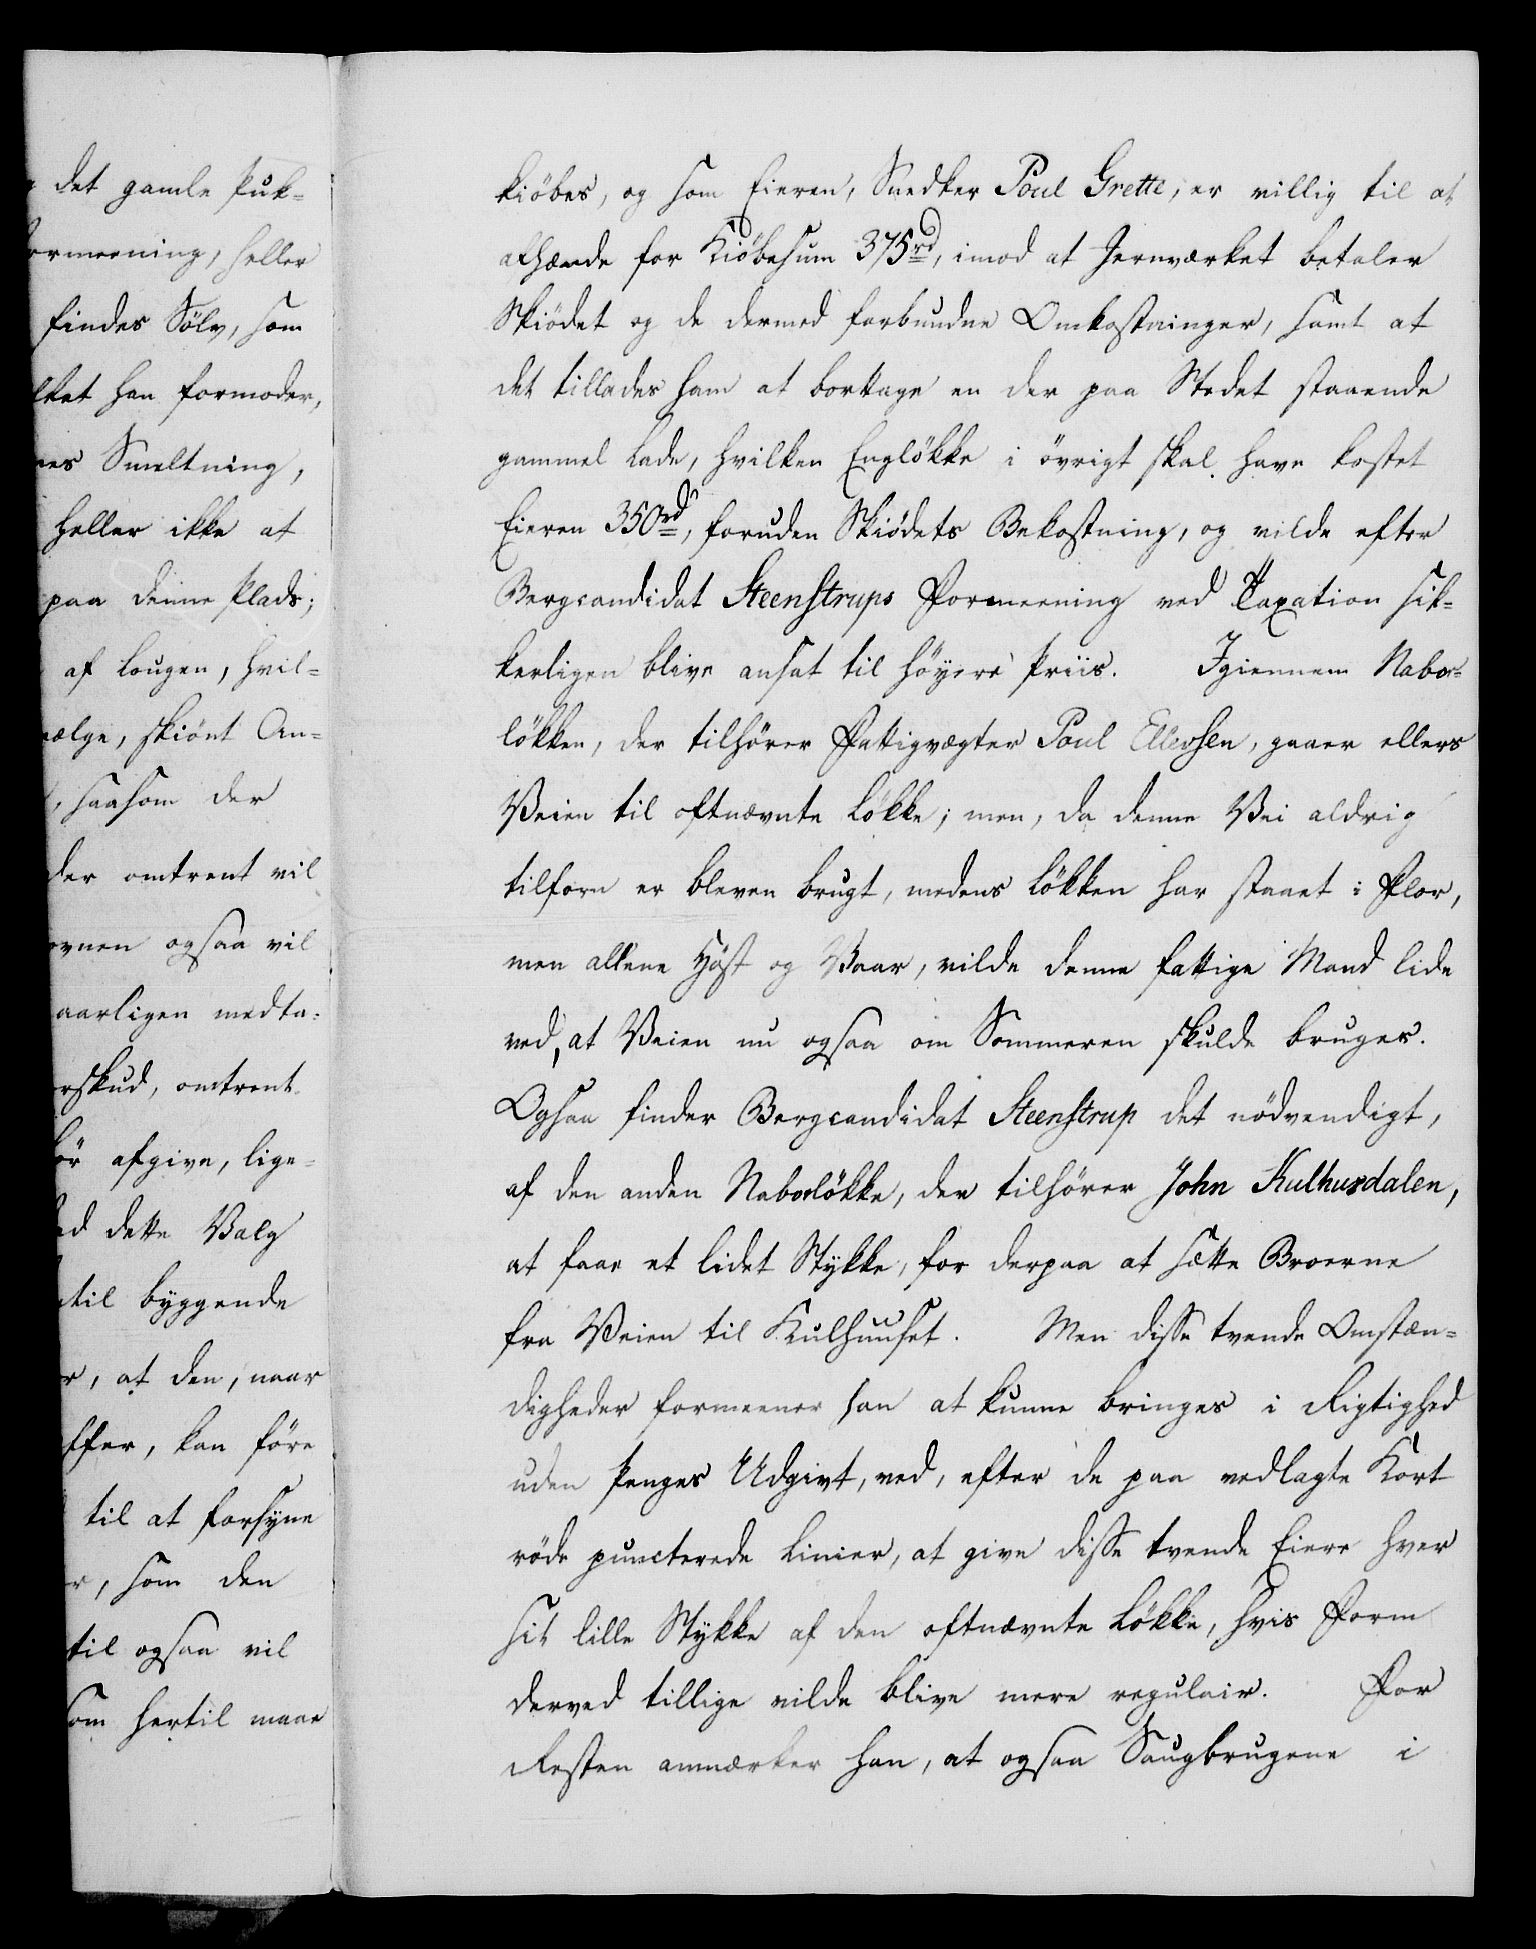 det gamle Puk-
formeening, heller
findes Sölv, som
lket han formoder,
nes Smeltning,
heller ikke at
paa denne Plads;
af Lougen, hvil-
vælge, skiönt An-
, saasom der
der omtrent vil
ovnen ogsaa vil
aarligen medta-
rskud, omtrent
bör afgive, lige-
ed dette Valg
til byggende
r, at den, naar
ffer, kan före
til at forsyne
r, som den
til ogsaa vil
som hertil maae
kiöbes, og som Eieren, Snedker Poul Grette, er villig til at
afhænde for Kiöbesum 375 rd, imod at Jernværket betaler
Skiödet og de dermed forbundne Omkostninger, samt at
det tillades ham at borttage en der paa Stedet staaende
gammel Lade, hvilken Englökke i övrigt skal have kostet
Eieren 350 rd, foruden Skiödets Bekostning, og vilde efter
Bergcandidat Steenstrups Formeening ved Taxation sik-
kerligen blive ansat til höyere Priis. Igiennem Naboe-
lökken, der tilhörer Fattigvægter Poul Ellevsen, gaaer ellers
Veien til oftnævnte Lökke; men, da denne Vei aldrig
tilforn er bleven brugt, medens Lökken har staaet i Flor,
men allene Höst og Vaar, vilde denne fattige Mand lide
ved, at Veien nu ogsaa om Sommeren skulde bruges.
Ogsaa finder Bergcandidat Steenstrup det nödvendigt,
af den anden Naboelökke, der tilhörer John Kulhusdalen,
at faae et lidet Stykke, for derpaa at sætte Broerne
fra Veien til Kulhuuset. Men disse tvende Omstæn-
digheder formeener han at kunne bringes i Rigtighed
uden Penges Udgivt, ved, efter de paa vedlagte Kort
röde puncterede Linier, at give disse tvende Eiere hver
sit lille Stykke af den oftnævnte Lökke, hvis Form
derved tillige vilde blive mere regulair. For
Resten anmærker han, at ogsaa Saugbrugene i